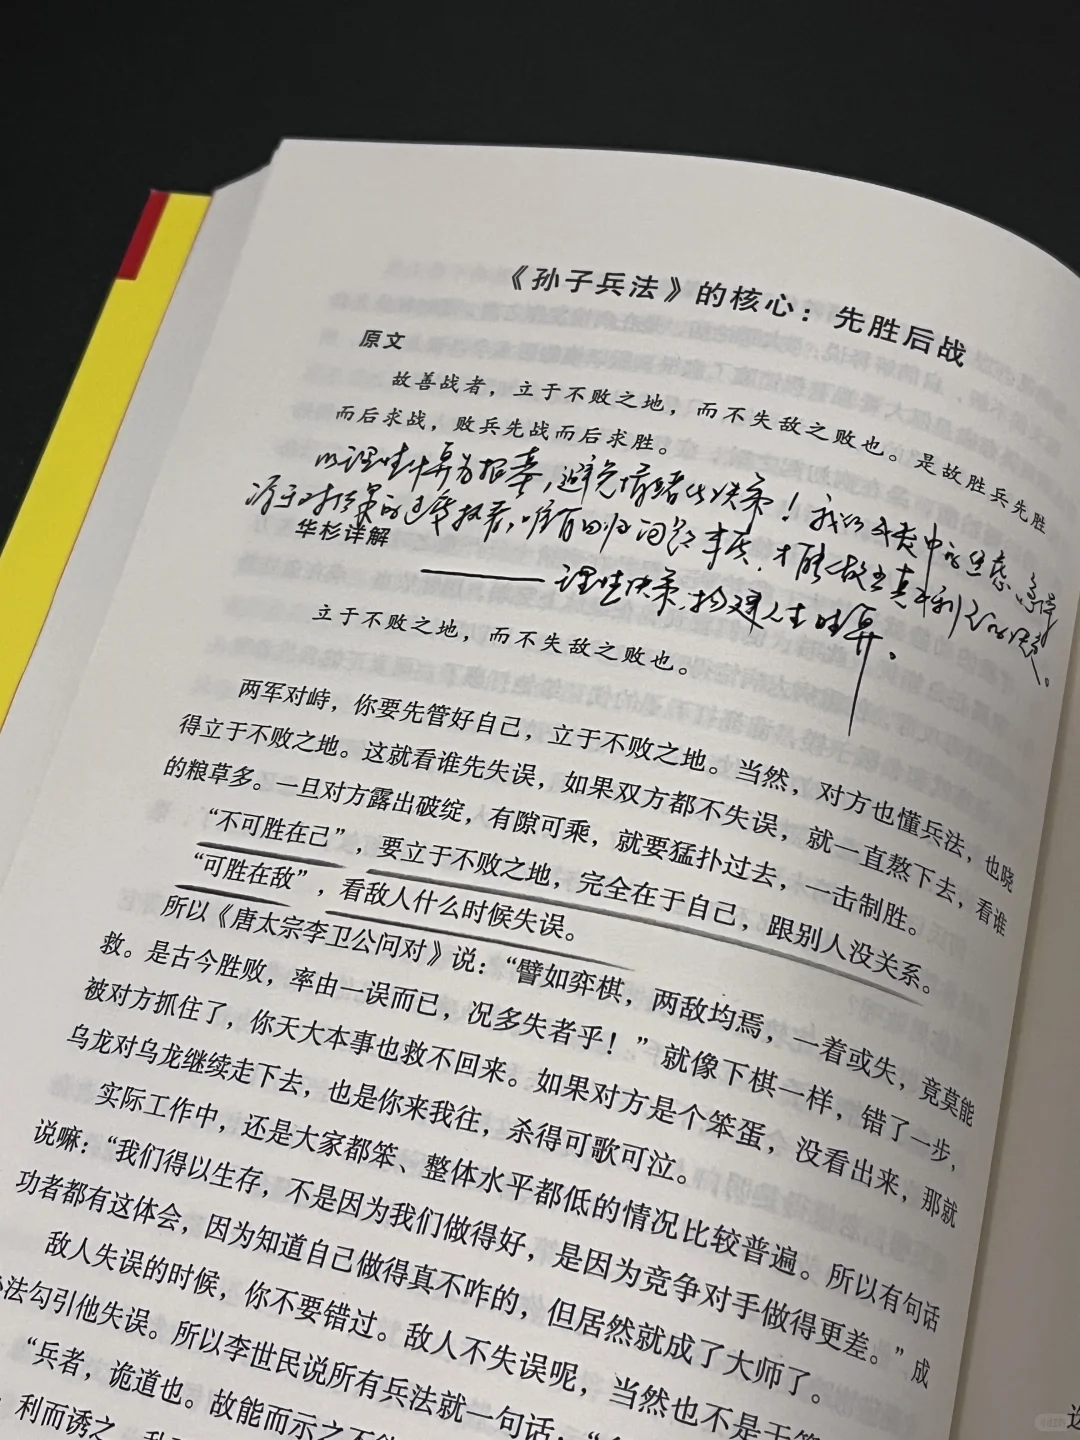 《孙子兵法》的核心：先胜后战
原文
故善战者，立于不败之地，而不失敌之败也。是故胜兵先胜
而后求战，败兵先战而后求胜。
以理性计算为根基，避免情绪化决策！我们
源于对结果的过度执着，唯有回归问题本质，才能做出真
华杉详解
——理性决策，构建人生胜算。
立于不败之地，而不失敌之败也。
两军对峙，你要先管好自己，立于不败之地。当然，对方也懂兵法，也晓
得立于不败之地。这就看谁先失误，如果双方都不失误，就一直熬下去，看谁
的粮草多。一旦对方露出破绽，有隙可乘，就要猛扑过去，一击制胜。
“不可胜在己”，要立于不败之地，完全在于自己，跟别人没关系。
“可胜在敌”，看敌人什么时候失误。
所以《唐太宗李卫公问对》说：“譬如弈棋，两敌均焉，一着或失，竟莫能
救。是古今胜败，率由一误而已，况多失者乎！”就像下棋一样，错了一步，
被对方抓住了，你天大本事也救不回来。如果对方是个笨蛋，没看出来，那就
乌龙对乌龙继续走下去，也是你来我往，杀得可歌可泣。
实际工作中，还是大家都笨、整体水平都低的情况比较普遍。所以有句话
说嘛：“我们得以生存，不是因为我们做得好，是因为竞争对手做得更差。”成
功者都有这体会，因为知道自己做得真不咋的，但居然就成了大师了。
敌人失误的时候，你不要错过。敌人不失误呢，当然也不是干等
法勾引他失误。所以李世民说所有兵法就一句话，“
“兵者，诡道也。故能而示之不能
利而诱之，